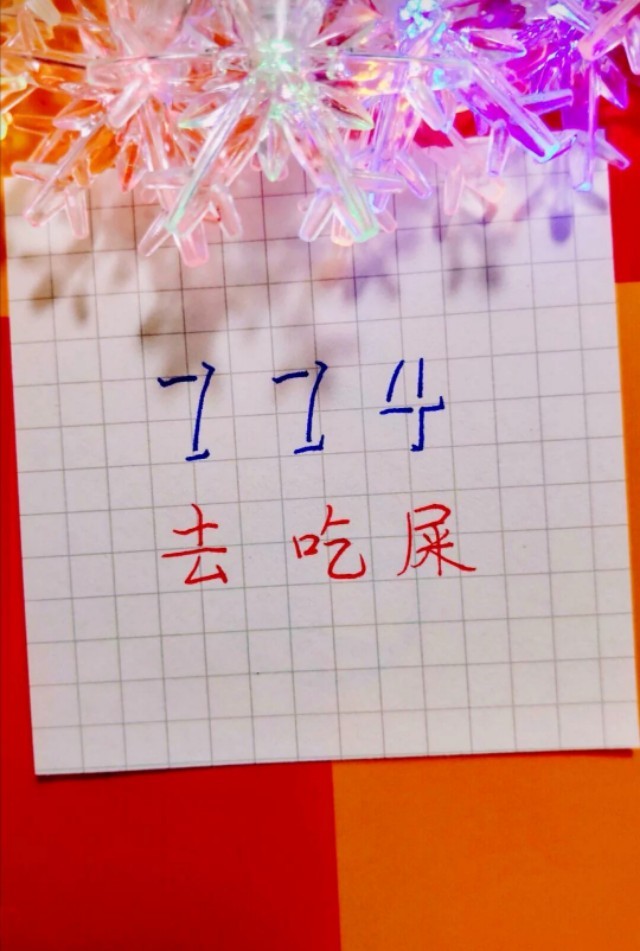 774
去吃屎